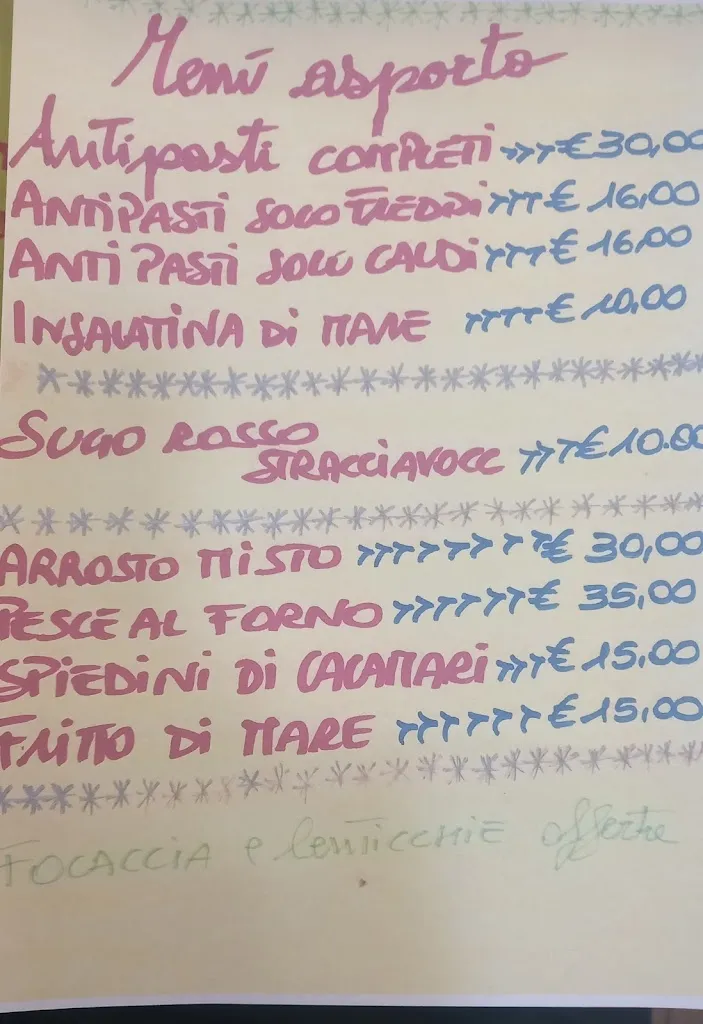 Menù asporto
Antipasti COMPLETI >>>€30,00
ANTIPASTI SOLO FREDDI >>>€ 16,00
ANTIPASTI SOLO CALDI >>>€ 16,00
INSALATINA DI MARE >>>>€ 10,00
SUGO ROSSO
STRACCIAVOCC >>>€10.00
ARROSTO MISTO >>>>>>>>€ 30,00
PESCE AL FORNO >>>>>>>€ 35,00
SPIEDINI DI CALAMARI >>>€15,00
FRITTO DI MARE >>>>>>>€15,00
FOCACCIA e lenTICCHIE offerte